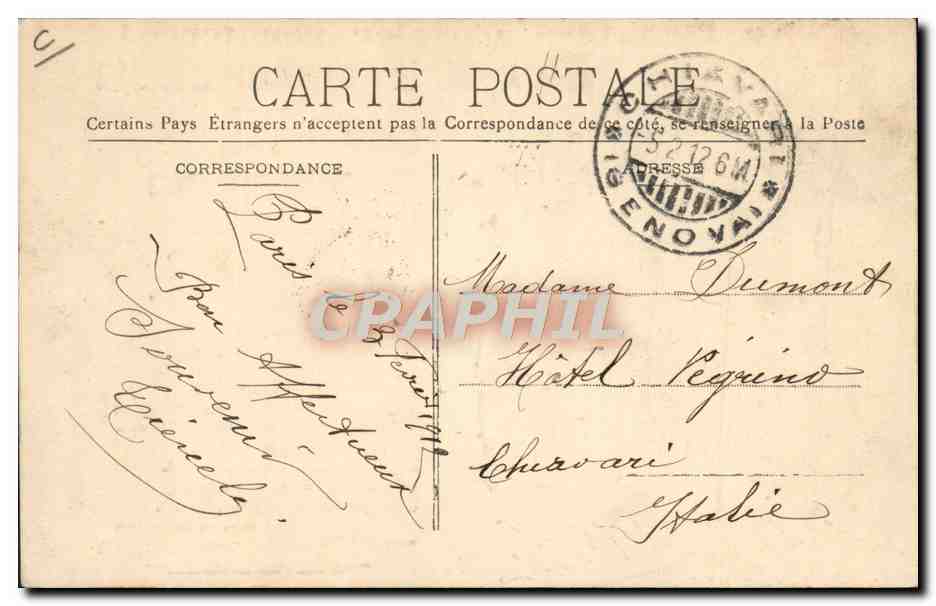 CARTE POSTALE
Certains Pays Étrangers n'acceptent pas la Correspondance de ce côté, se renseigner à la Poste
CORRESPONDANCE
ADRESSE
CHIAVARI
5 2 12 6M
GENOVA
Paris le 3 Fevr 1912
Bon Affectueux
Souvenir
Madame Dumont
Hôtel Pégrino
Chiavari
Italie
CPAPHIL